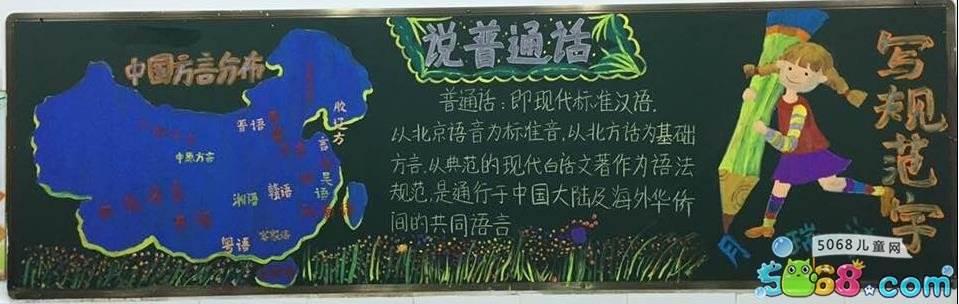 中国方言分布
晋语
胶辽方言
中原方言
吴语
湘语
赣语
粤语
客家话
说普通话
普通话：即现代标准汉语，
以北京语音为标准音，以北方话为基础
方言，以典范的现代白话文著作为语法
规范，是通行于中国大陆及海外华侨
间的共同语言
写规范字
5068儿童网
5068.com